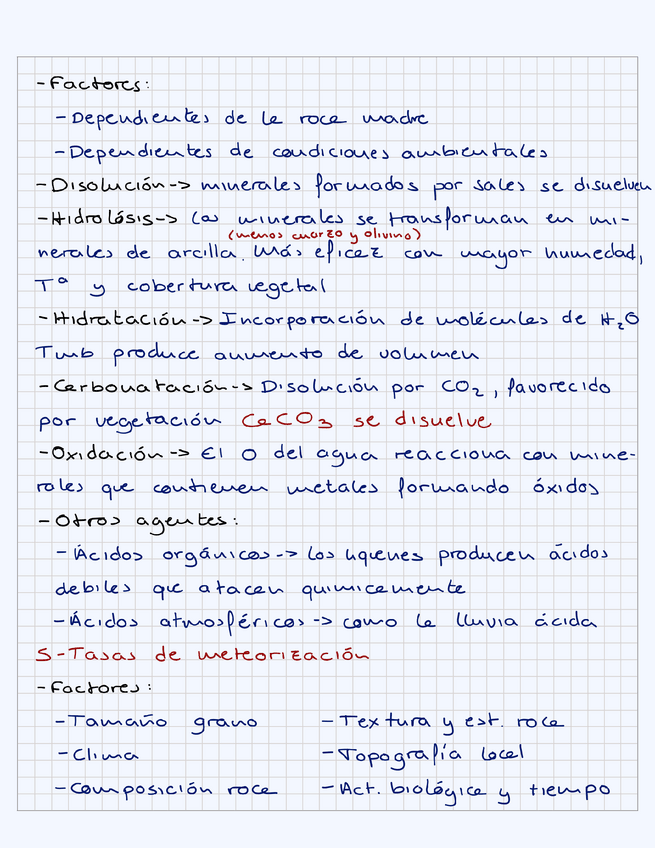 -Factores:
-Dependientes de la roca madre
-Dependientes de condiciones ambientales
-Disolución-> minerales formados por sales se disuelven
-Hidrólisis-> los minerales se transforman en mi-
(menos cuarzo y olivino)
nerales de arcilla. Más eficaz con mayor humedad,
Tª y cobertura vegetal
-Hidratación -> Incorporación de moléculas de H₂O
Tmb produce aumento de volumen
-Carbonatación-> Disolución por CO₂, favorecido
por vegetación CaCO₃ se disuelve
-Oxidación -> El O del agua reacciona con mine-
rales que contienen metales formando óxidos
-Otros agentes:
-Ácidos orgánicos-> los líquenes producen ácidos
debiles que atacan quimicamente
-Ácidos atmosféricos -> como la lluvia ácida
5-Tasas de meteorización
-Factores:
-Tamaño grano -Textura y est. roca
-Clima -Topografía local
-Composición roca -Act. biológica y tiempo